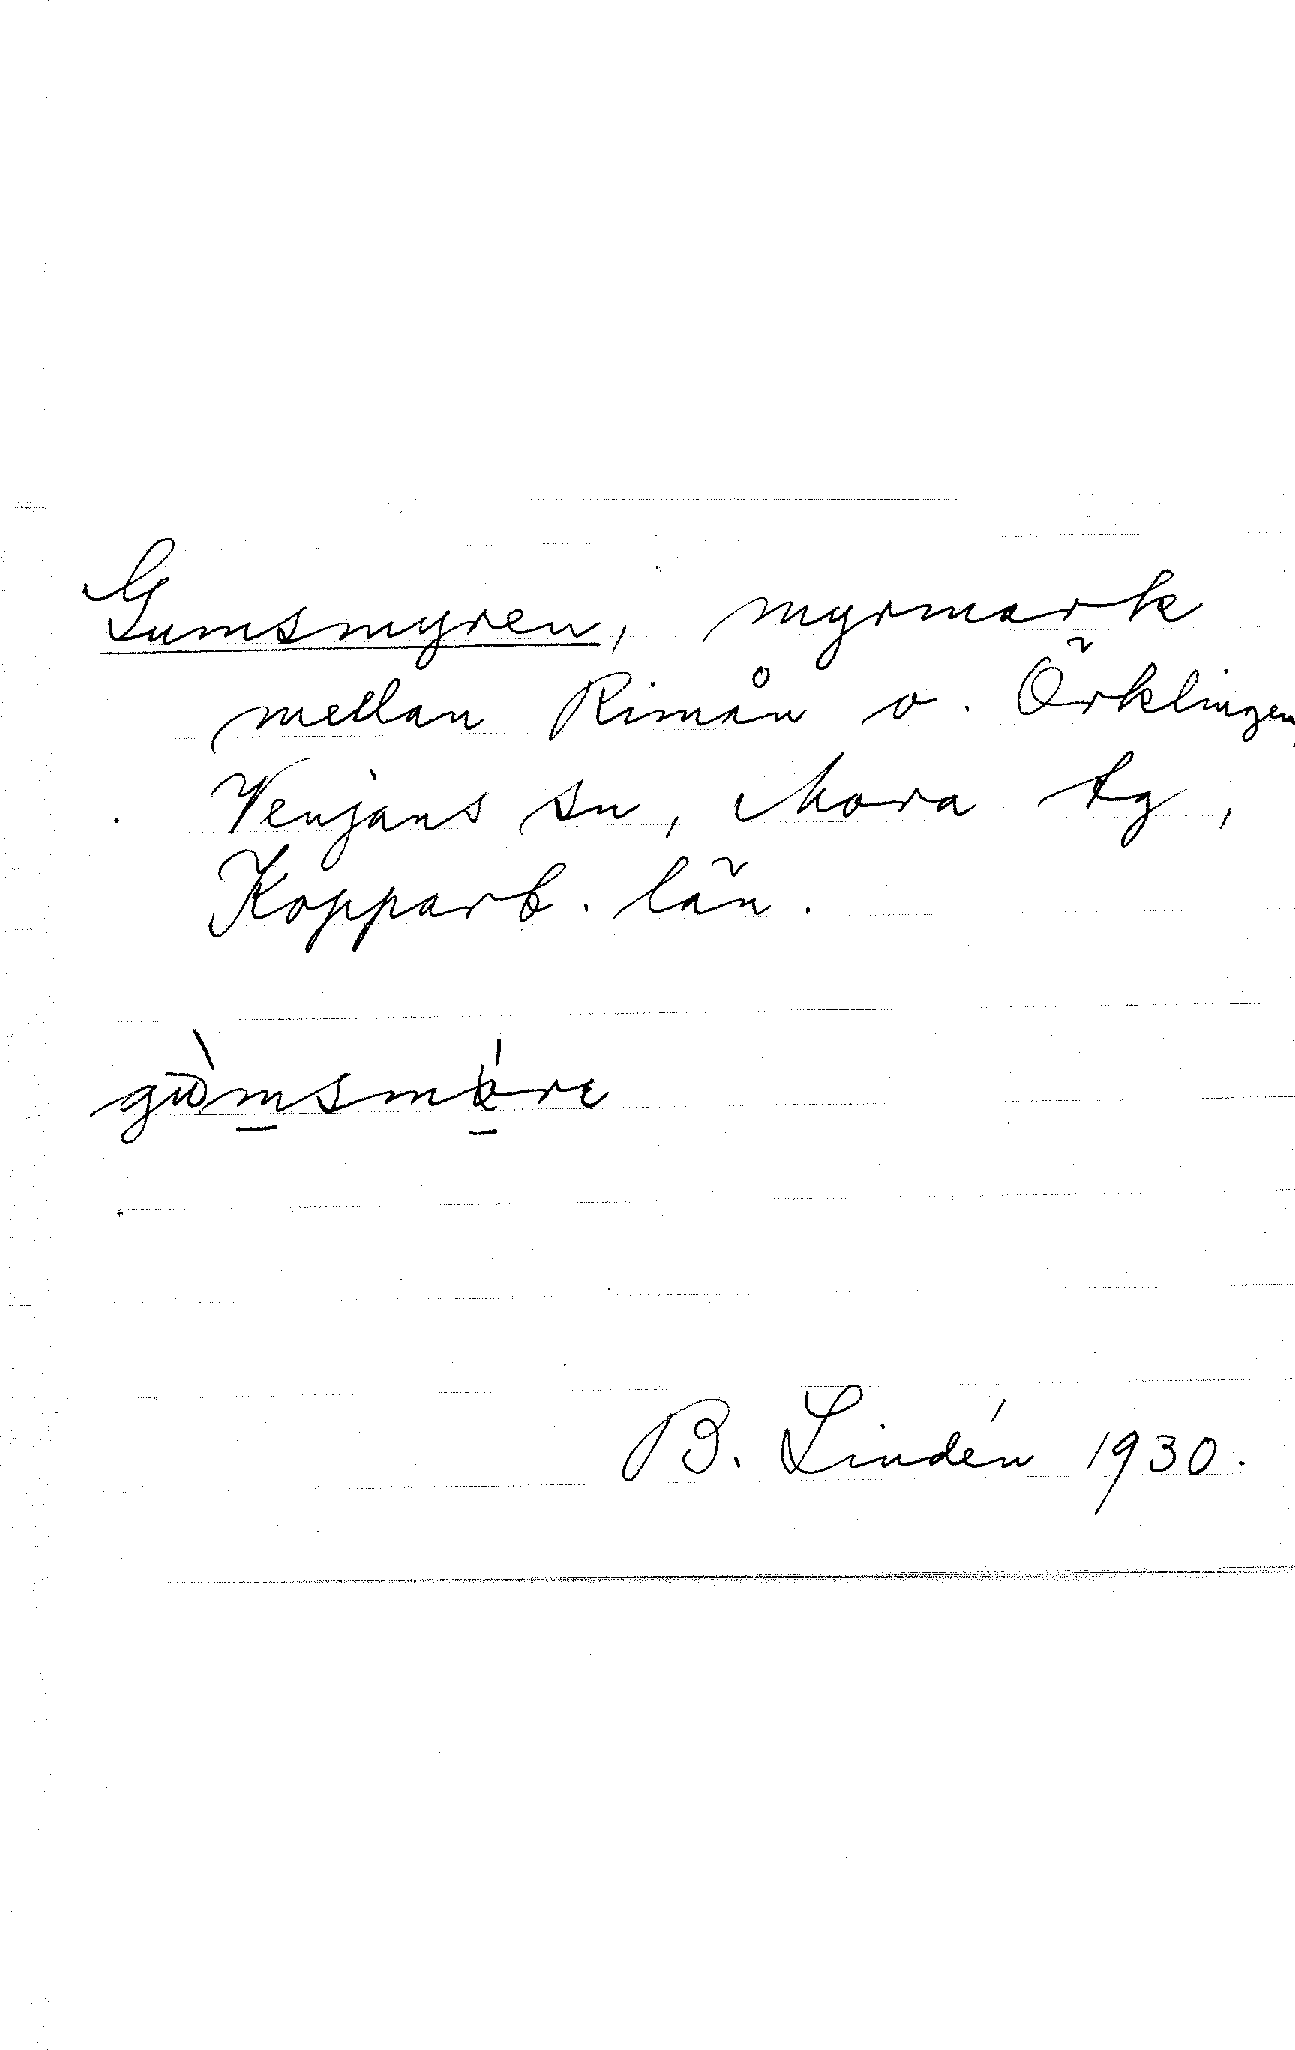 Gumsmyren, myrmark
mellan Rimån o. Örklingen,
Venjans sn, Mora tg,
Kopparb. län.
B. Lindén 1930.